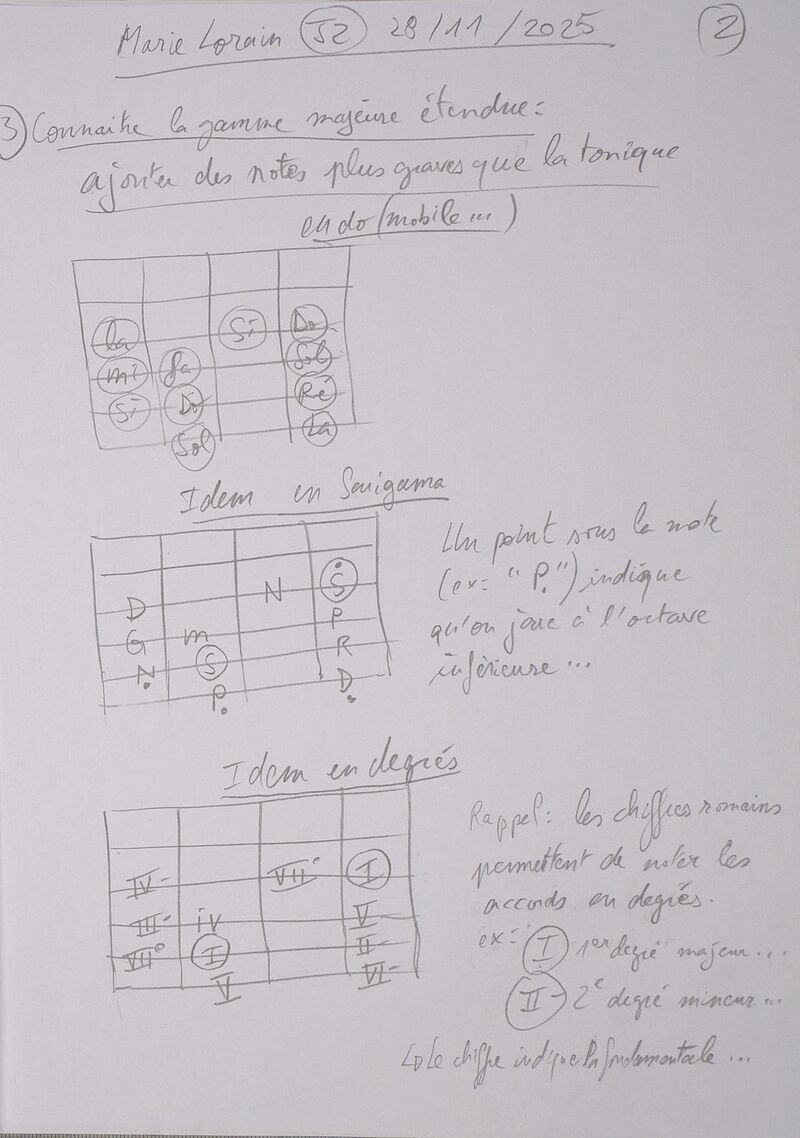 Marie Lorain J2 28/11/2025 2
3) Connaitre la gamme majeure étendue:
ajouter des notes plus graves que la tonique
en do (mobile...)
la Si Do
mi Fa Sol
Si Do Ré
Sol La
Idem en Sarigama
Un point sous la note
(ex: "Ṗ.") indique
qu'on joue à l'octave
inférieure...
D N Ṡ
G m P
Ṇ S R
P. Ḍ
Idem en degrés
Rappel: les chiffres romains
permettent de noter les
accords en degrés.
ex: I 1er degré majeur...
II- 2e degré mineur...
↳ Le chiffre indique la fondamentale...
IV- VII° I
III- iv V
VII° I II-
V VI-